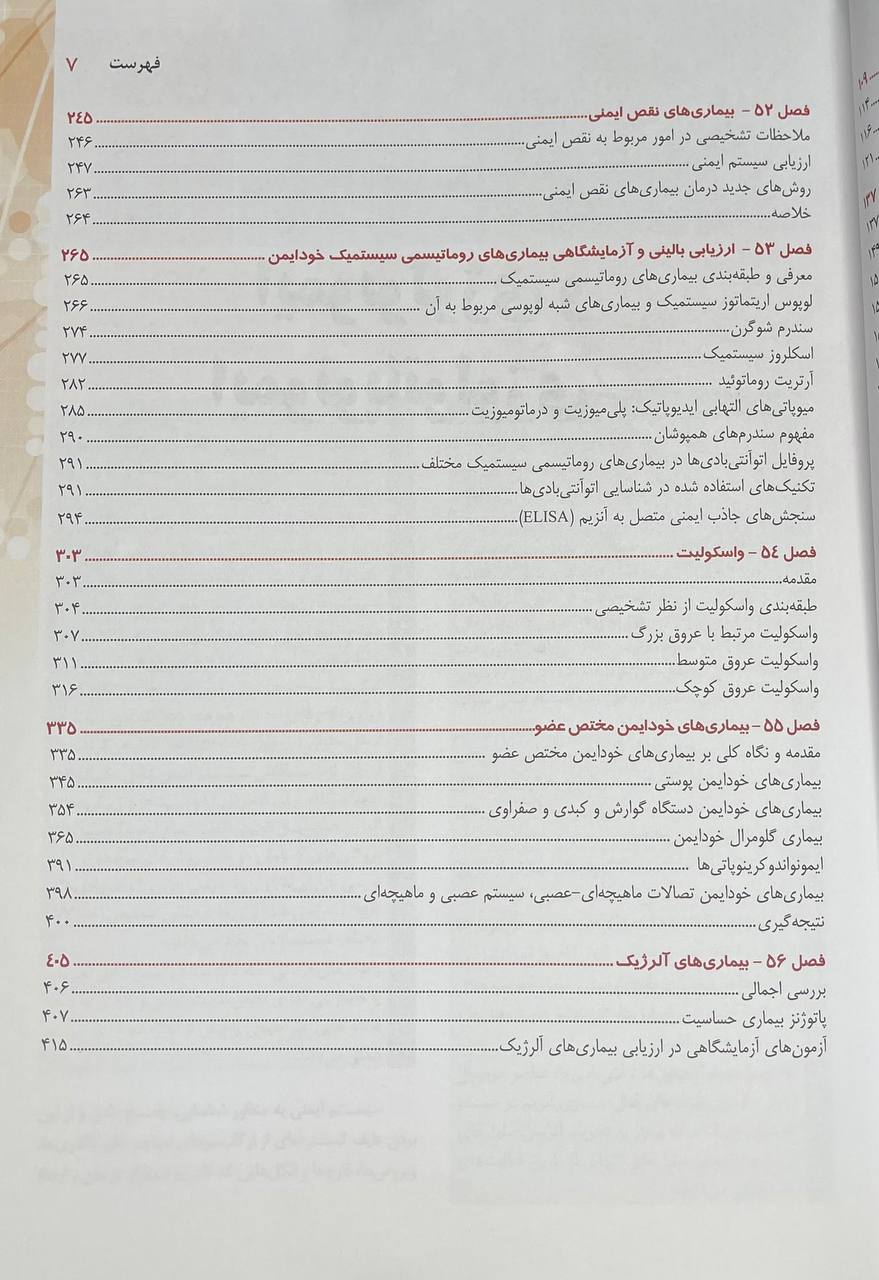 فهرست ۷
فصل ۵۲ - بیماری‌های نقص ایمنی ۲٤۵
ملاحظات تشخیصی در امور مربوط به نقص ایمنی ۲۴۶
ارزیابی سیستم ایمنی ۲۴۷
روش‌های جدید درمان بیماری‌های نقص ایمنی ۲۶۳
خلاصه ۲۶۴
فصل ۵۳ - ارزیابی بالینی و آزمایشگاهی بیماری‌های روماتیسمی سیستمیک خودایمن ۲۶۵
معرفی و طبقه‌بندی بیماری‌های روماتیسمی سیستمیک ۲۶۵
لوپوس اریتماتوز سیستمیک و بیماری‌های شبه لوپوسی مربوط به آن ۲۶۶
سندرم شوگرن ۲۷۴
اسکلروز سیستمیک ۲۷۷
آرتریت روماتوئید ۲۸۲
میوپاتی‌های التهابی ایدیوپاتیک: پلی‌میوزیت و درماتومیوزیت ۲۸۵
مفهوم سندرم‌های همپوشان ۲۹۰
پروفایل اتوآنتی‌بادی‌ها در بیماری‌های روماتیسمی سیستمیک مختلف ۲۹۱
تکنیک‌های استفاده شده در شناسایی اتوآنتی‌بادی‌ها ۲۹۱
سنجش‌های جاذب ایمنی متصل به آنزیم (ELISA) ۲۹۴
فصل ٥٤ - واسکولیت ۳۰۳
مقدمه ۳۰۳
طبقه‌بندی واسکولیت از نظر تشخیصی ۳۰۴
واسکولیت مرتبط با عروق بزرگ ۳۰۷
واسکولیت عروق متوسط ۳۱۱
واسکولیت عروق کوچک ۳۱۶
فصل ۵۵ - بیماری‌های خودایمن مختص عضو ۳۳۵
مقدمه و نگاه کلی بر بیماری‌های خودایمن مختص عضو ۳۳۵
بیماری‌های خودایمن پوستی ۳۴۵
بیماری‌های خودایمن دستگاه گوارش و کبدی و صفراوی ۳۵۴
بیماری گلومرال خودایمن ۳۶۵
ایمونواندوکرینوپاتی‌ها ۳۹۱
بیماری‌های خودایمن تصالات ماهیچه‌ای-عصبی، سیستم عصبی و ماهیچه‌ای ۳۹۸
نتیجه‌گیری ۴۰۰
فصل ۵۶ - بیماری‌های آلرژیک ٤۰۵
بررسی اجمالی ۴۰۶
پاتوژنز بیماری حساسیت ۴۰۷
آزمون‌های آزمایشگاهی در ارزیابی بیماری‌های آلرژیک ۴۱۵